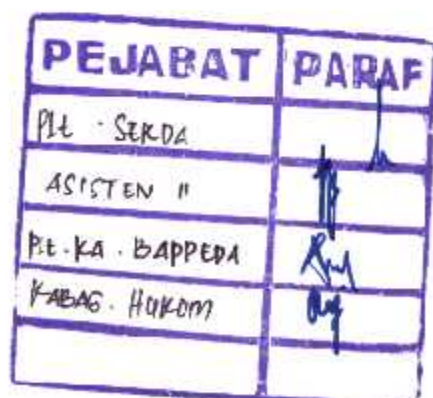 PEJABAT PARAF
Plt. SEKDA
ASISTEN II
Plt. KA. BAPPEDA
KABAG. HUKOM